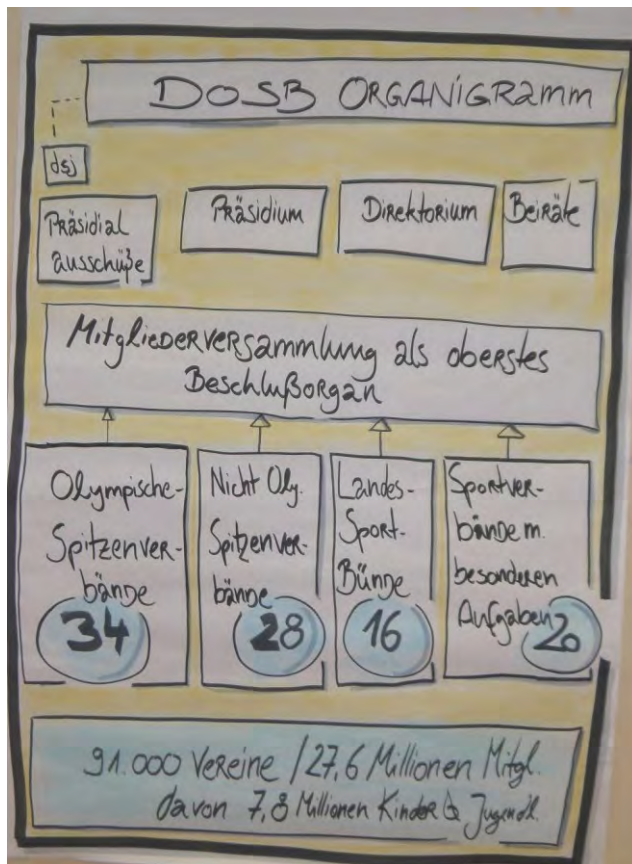 DOSB ORGANiGRamm
dsj
Präsidial
ausschüße
Präsidium
Direktorium
Beiräte
Mitgliederversammlung als oberstes
Beschlußorgan
Olympische-
Spitzenver-
bände
34
Nicht Oly.
Spitzenver-
bände
28
Landes-
Sport-
Bünde
16
Sportver-
bände m.
besonderen
Aufgaben
20
91.000 Vereine / 27,6 Millionen Mitgl.
davon 7,8 Millionen Kinder & Jugendl.